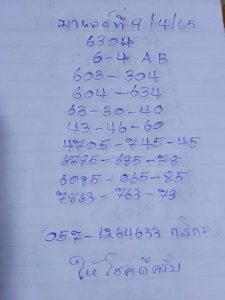 มาแล้วที่ 9/4/65
6304
6-4 AB
603-304
604-634
63-30-40
43-46-60
4705-745-45
6785-685-78
6085-065-85
7863-763-73
057-1264633 กสิกร
ให้โชคดีครับ